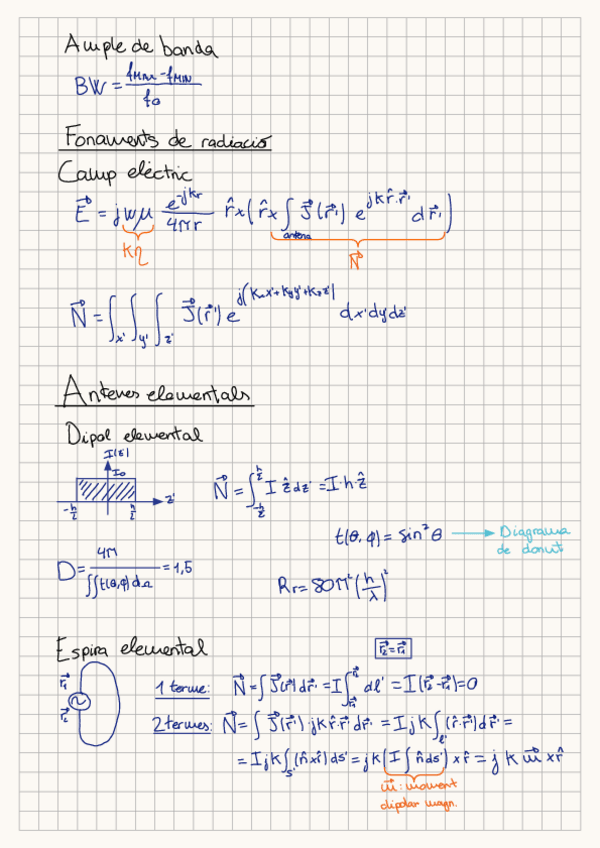 Ample de banda
BW = (fMAX - fMIN) / f0
Fonaments de radiació
Camp elèctric
E⃗ = jωμ e^(-jkr) / 4πr r̂x(r̂x∫ J⃗(r⃗') e^(jkr̂·r⃗') dr⃗')
antena
kη N⃗
N⃗ = ∫x' ∫y' ∫z' J⃗(r⃗') e^(j(kxx'+kyy'+kzz')) dx'dy'dz'
Antenes elementals
Dipol elemental
I(z)
I0
-h/2 h/2 z'
N⃗ = ∫_(-h/2)^(h/2) I ẑ dz' = I·h ẑ
t(θ,φ) = sin²θ → Diagrama
de donut
D = 4π / ∫∫t(θ,φ)dΩ = 1,5
Rr = 80π²(h/λ)²
Espira elemental
r⃗2 = r⃗1
r⃗1
r⃗2
1 terme: N⃗ = ∫ J⃗(r⃗')dr⃗' = I∫_(r⃗1)^(r⃗2) dl' = I(r⃗2-r⃗1)=0
2 termes: N⃗ = ∫ J⃗(r⃗')·jkr̂·r⃗' dr⃗' = Ijk∫l'(r̂·r⃗')dr⃗' =
= Ijk∫s'(n̂xr̂)ds' = jk(I∫n̂ds') x r̂ = j k m⃗ x r̂
m⃗: moment
dipolar magn.